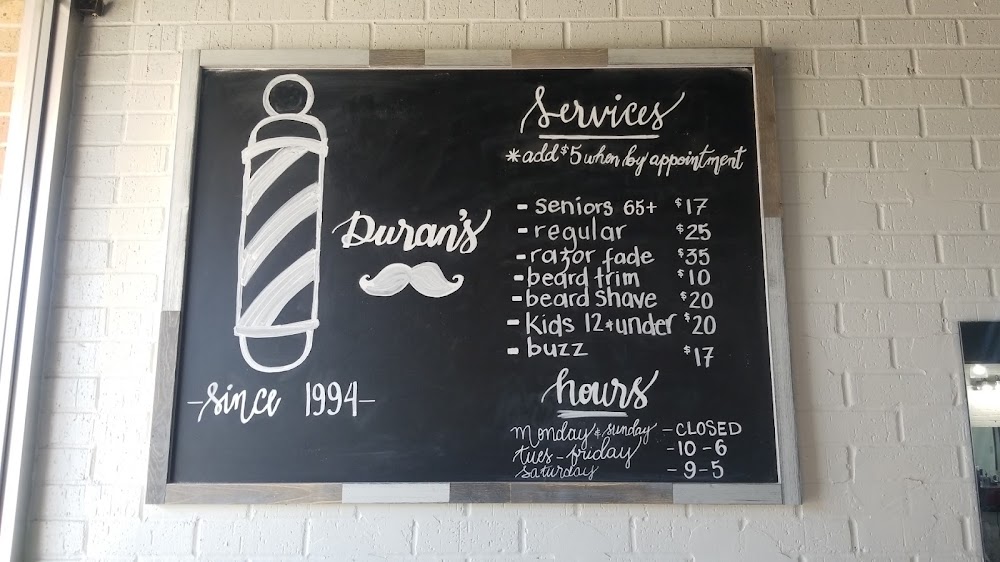 Duran's
-since 1994-
Services
*add $5 when by appointment
- seniors 65+ $17
- regular $25
- razor fade $35
- beard trim $10
- beard shave $20
- kids 12 & under $20
- buzz $17
hours
monday & sunday - CLOSED
tues - friday - 10 - 6
saturday - 9 - 5